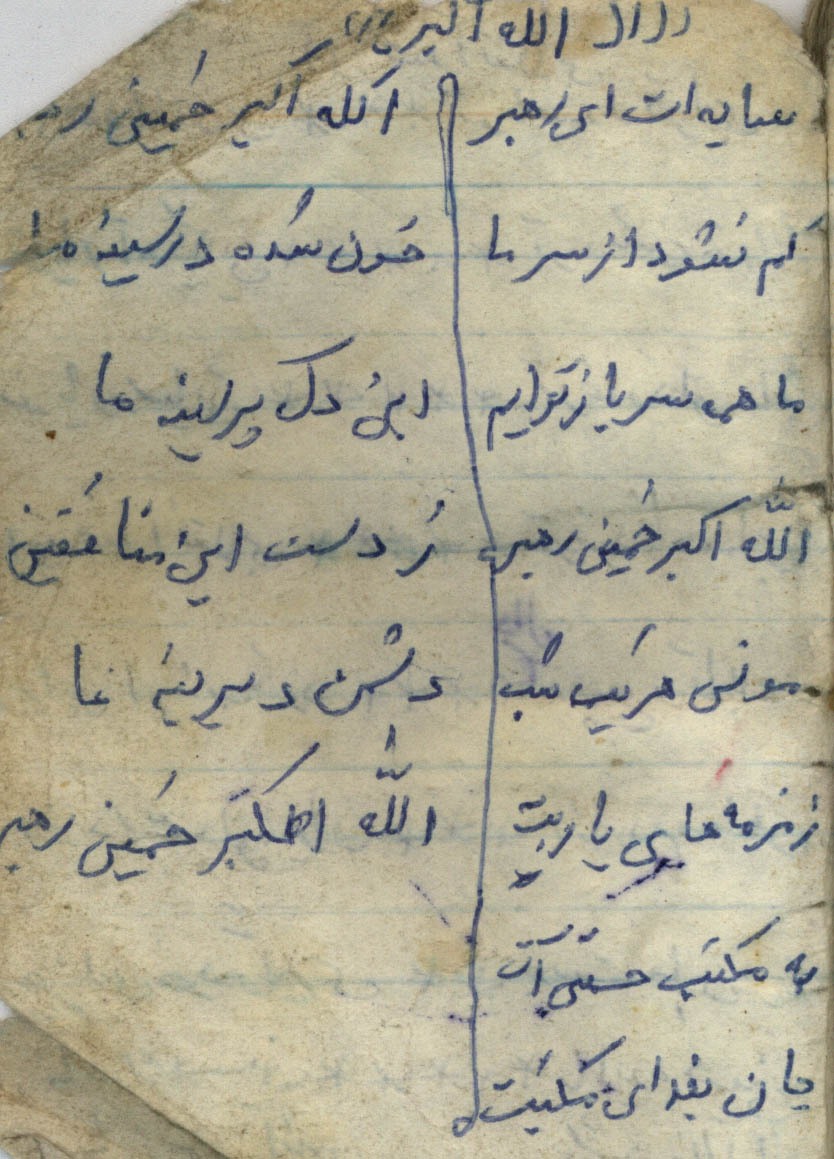 الله اکبر
سایه ات ای رهبر
کم نشود از سر ما
ما همه سرباز توایم
الله اکبر خمینی رهبر
مونس هر یک شب
زمزمه های یا ربت
به مکتب حسینی ات
جان بفدای مکتبت
الله اکبر خمینی
خون شده در سینه ما
این دل پر ما
ز دست این منافقین
دشمن دیرینه ما
الله اکبر خمینی رهبر